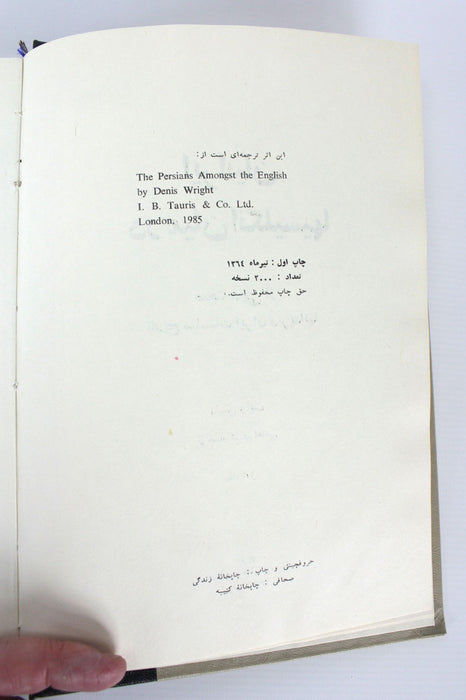 این اثر ترجمه‌ای است از:
The Persians Amongst the English
by Denis Wright
I. B. Tauris & Co. Ltd.
London, 1985
چاپ اول : تیرماه ۱۳۶۴
تعداد : ۳۰۰۰ نسخه
حق چاپ محفوظ است.
حروفچینی و چاپ : چاپخانهٔ زندگی
صحافی : چاپخانهٔ کتیبه